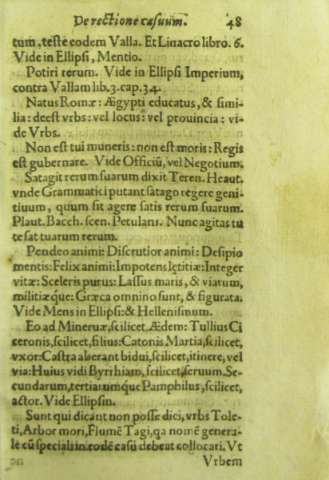 De rectione casuum. 48
tum, teste eodem Valla. Et Linacro libro. 6.
Vide in Ellipsi, Mentio.
Potiri rerum. Vide in Ellipsi Imperium,
contra Vallam lib. 3. cap. 34.
Natus Romæ: Ægypti educatus, & simi-
lia: deest vrbs: vel locus: vel prouincia: vi-
de Vrbs.
Non est tui muneris: non est moris: Regis
est gubernare. Vide Officiũ, vel Negotium.
Satagit rerum suarum dixit Teren. Heaut.
vnde Grammatici putant satago regere geni-
tiuum, quum sit agere satis rerum suarum.
Plaut. Bacch. scen. Petulans. Nunc agitas tu
te sat tuarum rerum.
Pendeo animi: Discrutior animi: Desipio
mentis: Felix animi: Impotens lętitiæ: Integer
vitæ: Sceleris purus: Lassus maris, & viarum,
militiæque: Græca omnino sunt, & figurata.
Vide Mens in Ellipsi: & Hellenismum.
Eo ad Mineruæ, scilicet, Ædem: Tullius Ci
ceronis, scilicet, filius: Catonis Martia, scilicet,
vxor: Castra aberant bidui, scilicet, itinere, vel
via: Huius vidi Byrrhiam, scilicet, seruum. Se-
cundarum, tertiarumque Pamphilus, scilicet,
actor. Vide Ellipsin.
Sunt qui dicant non posse dici, vrbs Tole-
ti, Arbor mori, Flumẽ Tagi, qa nomẽ genera-
le cũ speciali in eodẽ casũ debeat collocari. Vt
Vrbem